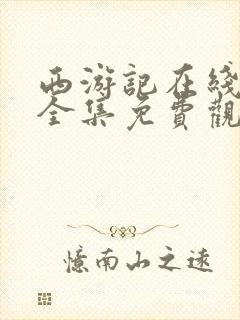 西游記在綫
全集免費觀
憶南山之遠